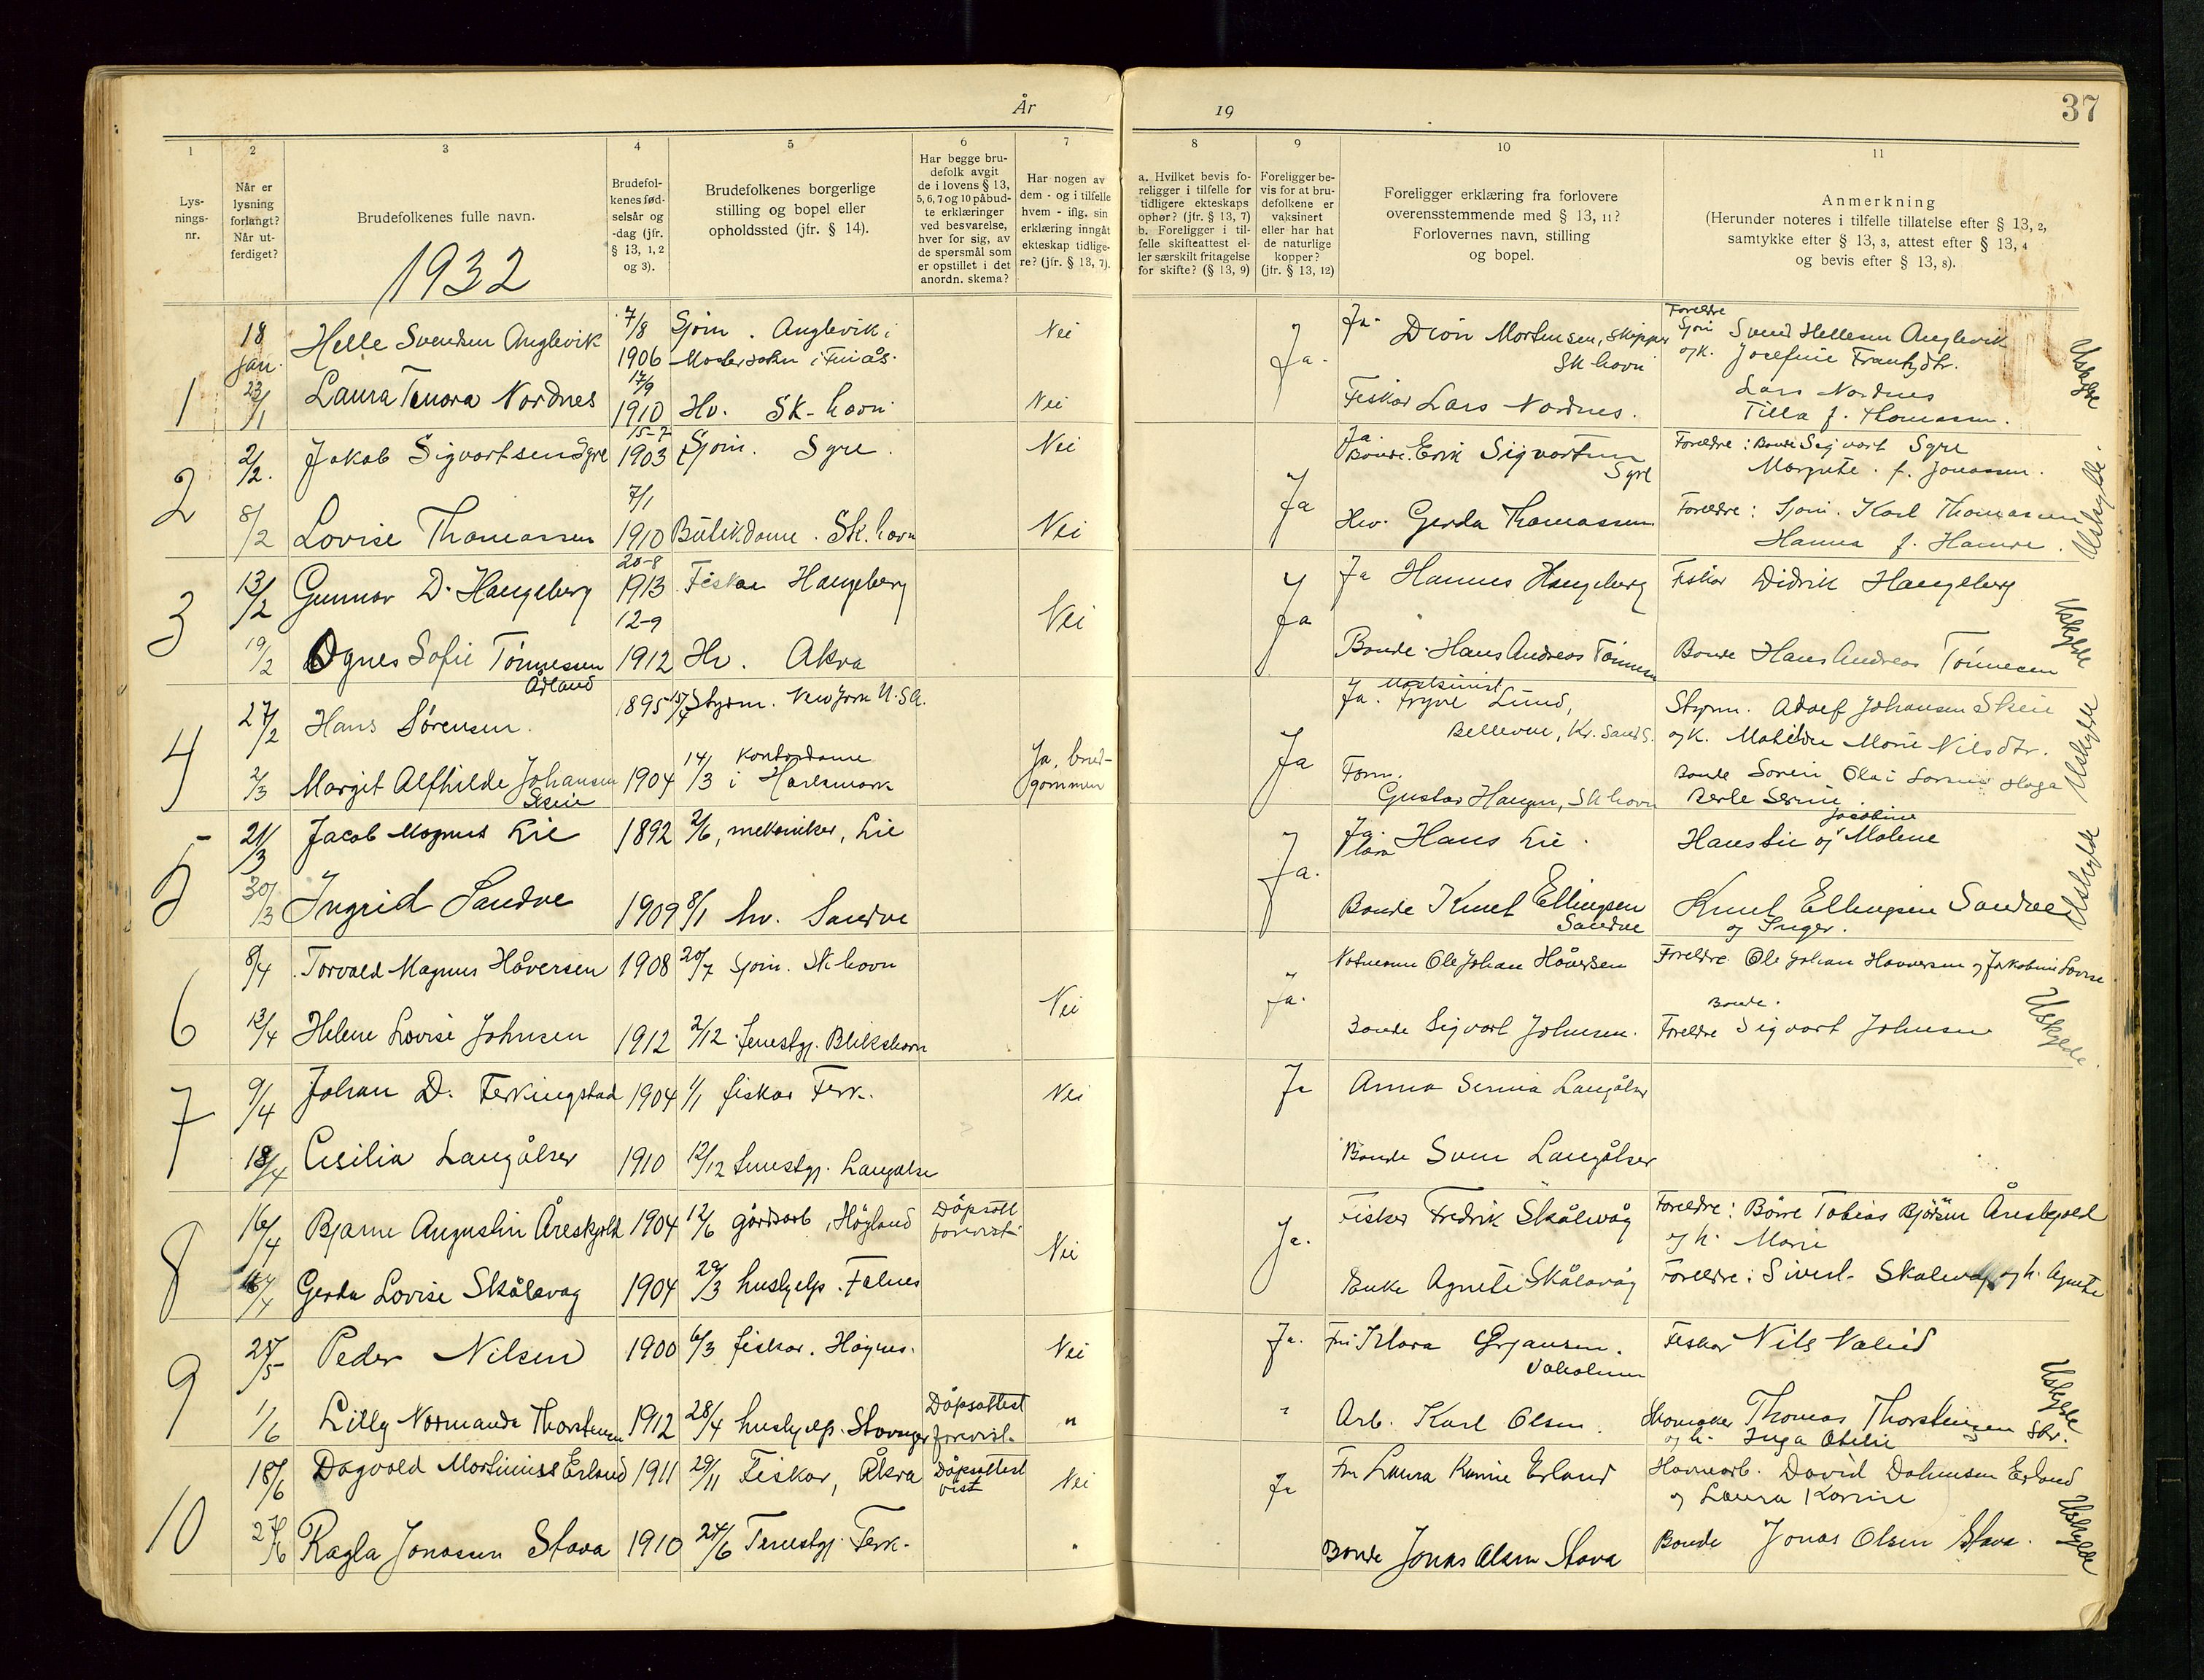 År
19
37
1
2
3
4
5
6
7
8
9
10
11
Lys-
nings-
nr.
Når er
lysning
forlangt?
Når ut-
ferdiget?
Brudefolkenes fulle navn.
1932
Brudefol-
kenes fød-
selsår og
-dag (jfr.
§ 13, 1, 2
og 3).
Brudefolkenes borgerlige
stilling og bopel eller
opholdssted (jfr. § 14).
Har begge bru-
defolk avgit
de i lovens § 13,
5, 6, 7 og 10 påbud-
te erklæringer
ved besvarelse,
hver for sig, av
de spørsmål som
er opstillet i det
anordn. skema?
Har nogen av
dem - og i tilfelle
hvem - iflg. sin
erklæring inngåt
ekteskap tidlige-
re? (jfr. § 13, 7).
a. Hvilket bevis fo-
religger i tilfelle for
tidligere ekteskaps
ophør? (jfr. § 13, 7)
b. Foreligger i til-
felle skifteattest el-
ler særskilt fritagelse
for skifte? (§ 13, 9)
Foreligger be-
vis for at bru-
defolkene er
vaksinert
eller har hat
de naturlige
kopper?
(jfr. § 13, 12)
Foreligger erklæring fra forlovere
overensstemmende med § 13, 11?
Forlovernes navn, stilling
og bopel.
Anmerkning
(Herunder noteres i tilfelle tillatelse efter § 13, 2,
samtykke efter § 13, 3, attest efter § 13, 4
og bevis efter § 13, 8).
1
18 jan.
Helle Svendsen Anglevik
7/8 1906
Sjøm. Anglevik i
Nei
Ja.
Ja. Dion Mortensen, Skipper
Sk havn
Foreldre
Sjøm Svend Hellesen Anglevik
og k. Josefine Frantzdtr.
23/1
Laura Tenora Nordnes
17/9 1910
Hv. Sk-havn
Nei
Fiskar Lars Nordnes.
Lars Nordnes
Tilla f. Thomassen.
Uskylde
2
2/2.
Jakob Sigvartsen Syre
15-7 1903
Sjøm. Syre.
Nei
Ja
Ja.
Bonde. Erik Sigvartsen
Syre
Foreldre: Bonde Sigvart Syre
Margrete. f. Jonassen.
8/2
Lovise Thomassen
7/1 1910
Butikdame. Sk. havn
Nei
Hv. Gerda Thomassen
Foreldre: Sjøm. Karl Thomassen
Hanna f. Hamre.
Uskylde.
3
13/2
Gunnar D. Haugeberg
20-8 1913
Fiskar Haugeberg
Nei
Ja
Ja Hannes Haugeberg
Fiskar Didrik Haugeberg
19/2
Agnes Sofie Tönnesen
Ådland
12-9 1912
Hv. Akra
Bonde Hans Andreas Tönnesen
Bonde Hans Andreas Tönnesen
Uskylde
4
27/2
Hans Sørensen.
1895 15/4
Styrm. New York U.S.A.
Ja
Ja. Maskinist
Trygve Lund,
Bellevue, Kr. Sand S.
Styrm. Adolf Johansen Skeie
og k. Mathilde Marie Nilsdtr.
2/3
Margit Alfhilde Johansen
Skeie
1904 14/3
kontordame
i
Ja, brud-
gommen
Form.
Gustav Haugen, Sk havn
Bonde Soren Haga
Berte Serine.
Uskylde
5
21/3
Jacob Magnus Lie
1892 2/6, mekaniker, Lie
Ja.
Ja.
Hans Lie.
Hans Lie og Jacobine Malene
30/3
Ingrid Sandve
1909 8/1 hv. Sandve
Bonde Knut Ellingsen
Sandve
Knut Ellingsen Sandve
og Inger.
Uskylde
6
8/4
Torvald Magnus Håversen
1908 20/7 Sjøm. Sk havn
Nei
Ja.
Notmann Ole Johan Håversen
Foreldre Ole Johan Haaversen og Jakobine Lovise
13/4
Helene Lovise Johnsen
1912 2/12 Tenestgj. Blikshavn
Bonde Sigvart Johnsen.
Bonde.
Foreldre Sigvart Johnsen
Uskylde.
7
9/4
Johan D. Ferkingstad
1904 1/1 fiskar Ferk.
Nei
Ja
Anna Serina Langåker
18/4
Cesilia Langåker
1910 12/12 tenestgj. Langåker
Bonde Sven Langåker
8
16/4
Bjarne Augustin Åreskjold
1904 12/6 gårdsarb, Högland
Dåpsatt
forevist
Nei
Ja.
Fisker Fredrik Skålevåg
Foreldre: Børre Tobias Björsen Åreskjold
og h. Marie
Gerda Lovise Skålevag
1904 29/3 hushjelp. Falnes
Enke Agnete Skålevåg
Foreldre: Sivert Skålevåg og h. Agnete
9
25/5
Peder Nilsen
1900 6/3 fiskar. Høynes.
Nei
Ja.
Fru Klara
Fiskar Nils Valeid
1/6
Lilly Normanda Thorstensen
1912 28/4 hushjelp. Stavanger
Dåpsattest
forevist.
"
"
Arb. Karl Olsen
Skomaker Thomas Thorstensen Skr.
og h. Inga Otelie
Uskylde
10
18/6
Dagvald Martinius Erland
1911 29/11 Fiskar, Åkra
Dåpsattest
vist
Nei
Ja
Fru Laura Karine Erland
Havnearb. David Erland
og Laura Karine
27/6
Ragla Jonassen Stava
1910 24/6 Tenestgj. Ferk.
"
Bonde Jonas Olsen Stava
Bonde Jonas Olsen Stava.
Uskylde